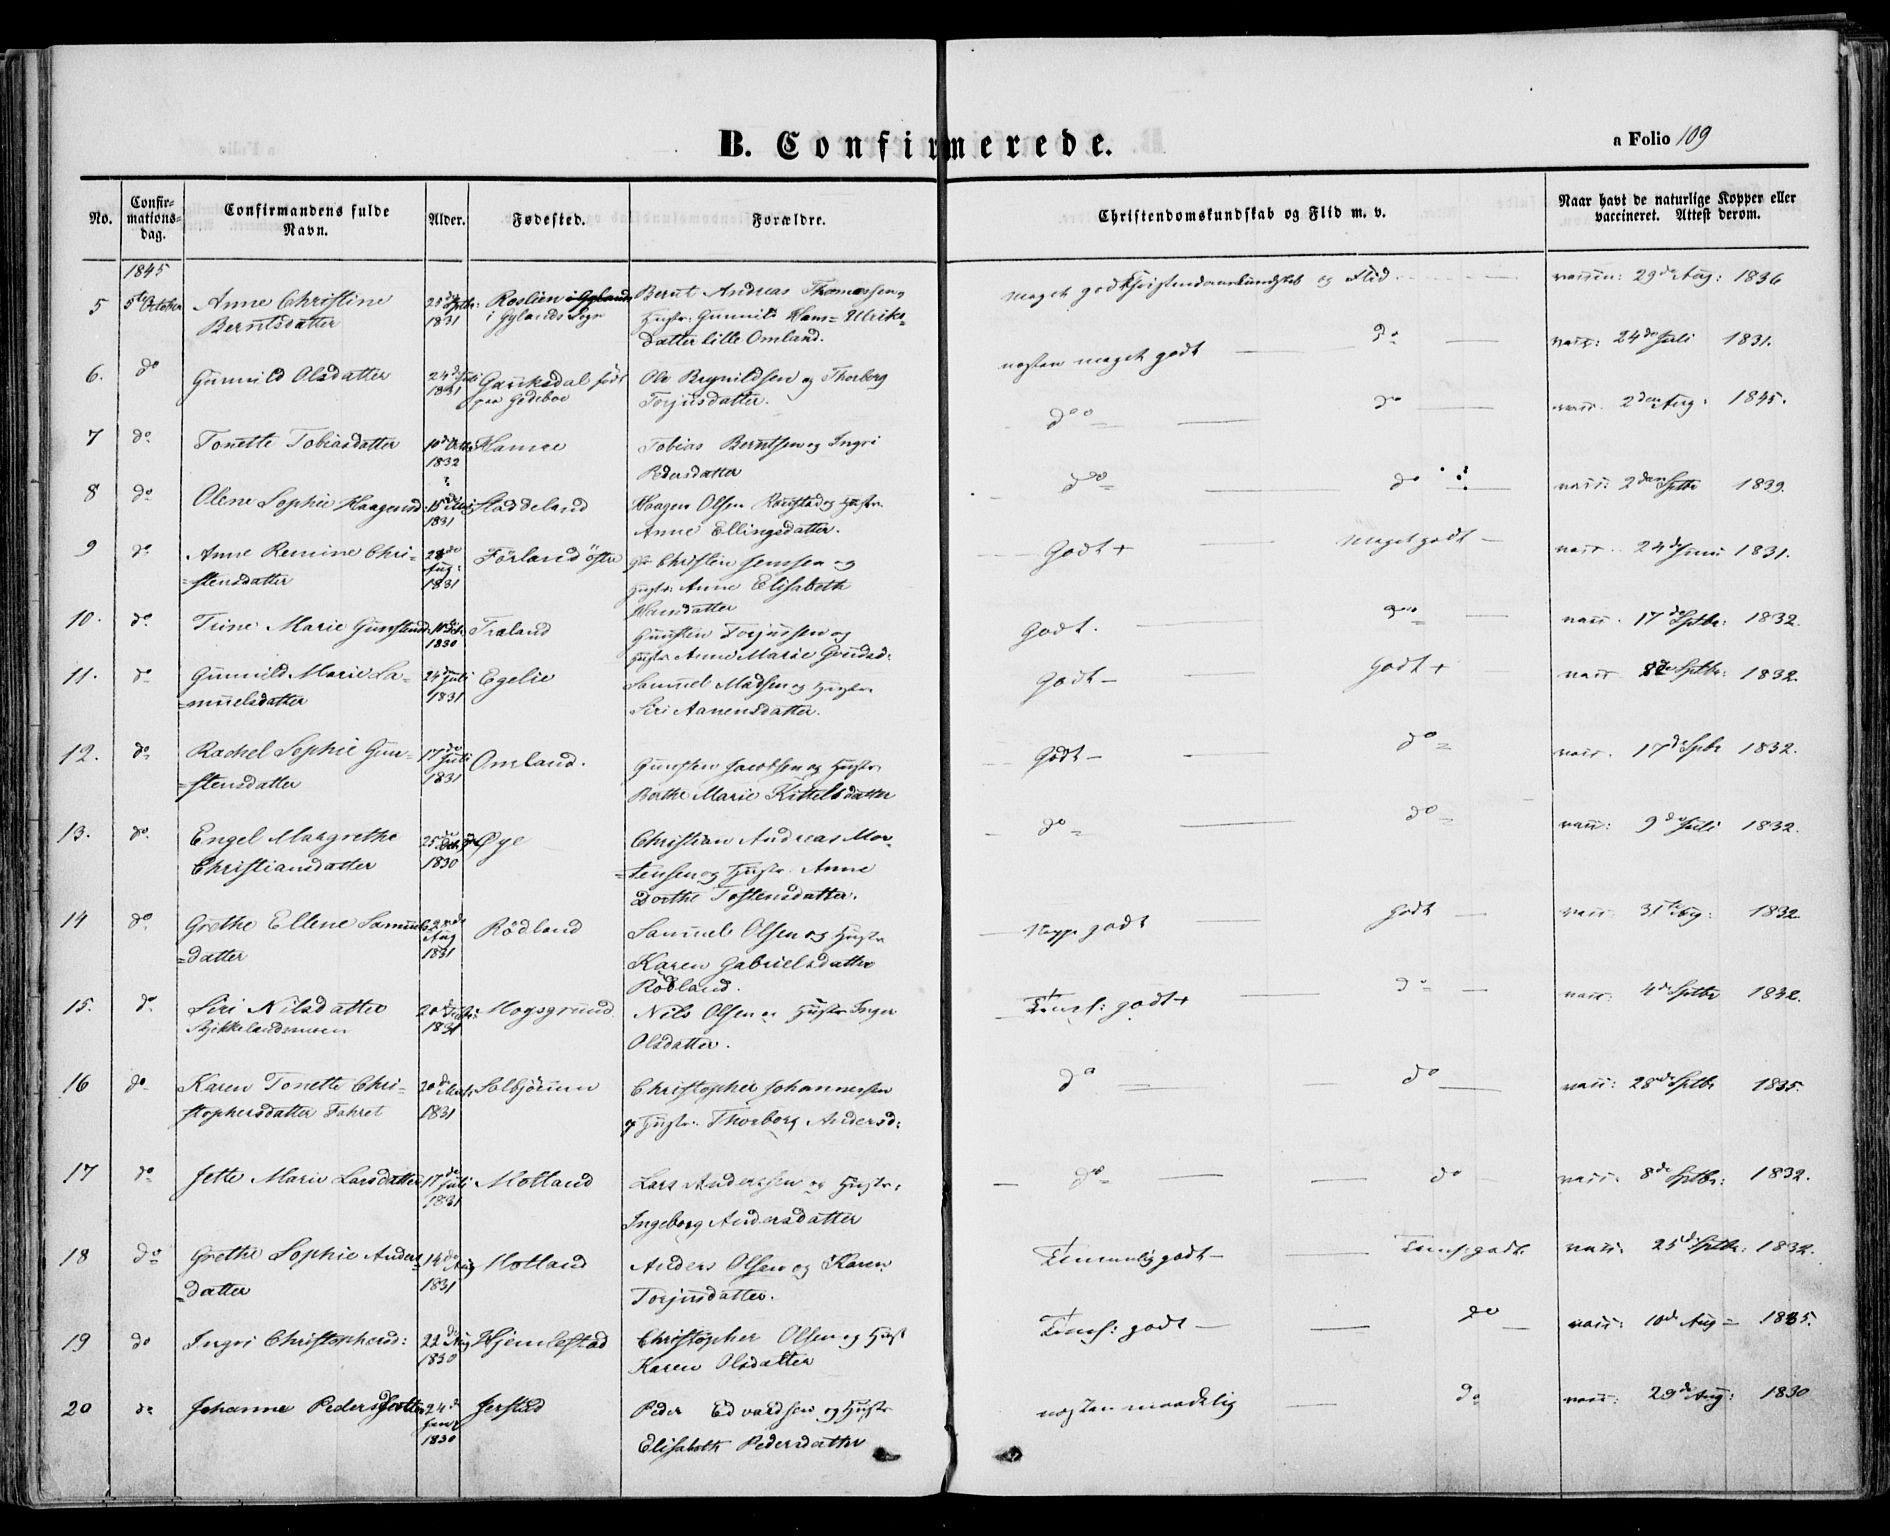 B. Confirmerede.
a Folio 109
No.
Confir-
mations-
dag.
Confirmandens fulde
Navn.
Alder.
Fødested.
Forældre.
Christendomskundskab og Flid m. v.
Naar havt de naturlige Kopper eller
vaccineret. Attest derom.
1845
5 5te October Anne Christine
Berntsdatter
1831
i Gylands Sogn
Bernt Andreas Thomassen og
Hustr: Gunnild Hans= Ulriks=
Datter Lille Omland.
Meget god Christendomskundskab og Flid
29de Aug: 1836
6. do Gunnild Olsdatter 24de Juli
1831
født
paa Godeboe
Ole Brynildsen og Thorborg
Torjusdatter.
næsten meget godt do
vacc: 24de Juli 1831.
7 do Tonette Tobiasdatter
1832
Hamre
Tobias Berntsen og Ingri
Pedersdatter
do do
vacc. 2den Aug: 1845.
8 do Olene Sophie Haagensd:
1831
Stoddeland
Haagen Olsen og Hustr.
Anne Ellingsdatter.
do do
vacc: 2den Sptbr 1839.
9 do Anne Remine Chri-
=stensdatter
28de
Aug:
1831
Förland
Christen Jenssen og
Hustr: Anne Elisabeth
Hansdatter
Godt + Meget godt
vacc. 24de Juni 1831.
10. do Trine Marie Gunstensd:
1830
Træland
Gunsten Torjussen og
Hustr: Anne Marie
Godt. do
vacc. 17de Sptbr: 1832.
11. do Gunnild Marie Sa-
=muelsdatter
24de Juli
1831
Egelie
Samuel Madsen og Hustr.
Siri Aanensdatter.
Godt - Godt +
vacc. Sptbr: 1832.
12. do Rachel Sophie Gun-
=stensdatter
17de
Juli
1831
Omland.
Gunsten Jacobsen og Hustr.
Berthe Marie Kittelsdatter
Godt - do
vacc. 17de Spbr 1832.
13. do Engel Margrethe
Christiansdatter
1830
Øye
Christian Andreas Mor-
=tensen og Hustr. Anne
Dorthe Tostensdatter.
do do
vacc: 9de Juli 1832.
14 do Grethe Ellene Samuels
=datter
Aug
1831
Rödland
Samuel Olsen og Hustr
Karen Gabrielsdatter
Rödland.
Neppe godt Godt
vacc: 31te Aug: 1832.
15. do Siri Nilsdatter
1831
Moysgrund
Nils Olsen og Hustr Inger
Olsdatter.
Temf: godt + do
vacc: 4de Sptbr 1832.
16 do Karen Tonette Chri-
stophersdatter Fahret
1831
Solbjörnen
Christopher Johannessen
og Hustr. Thorborg Andersd:
do do
vacc: 28de Sptbr 1835.
17 do Jette Marie Larsdatter 17de
Juli
1831
Motland
Lars Anderssen og Hustr:
Ingeborg Andersdatter
do do
vacc. 8de Sptbr: 1832.
18 do Grethe Sophie Anders
=datter
14de Aug
1831
Motland
Anders Olsen og Karen
Torjusdatter.
Temmelig godt - Temf: godt.
vacc: 25de Sptbr: 1832.
19 do Ingri Christophersd: 22de Aug
1830
Hjemlestad
Christopher Olsen og Hust
Karen Olsdatter
Temf: godt - do
vacc: 10de Aug 1835.
20 do Johanne Pedersdatter 24de
1830
Jerstad
Peder Edvardsen og Hustr
Elisabeth Pedersdatter
næsten maadelig do
vacc: 29de Aug: 1830